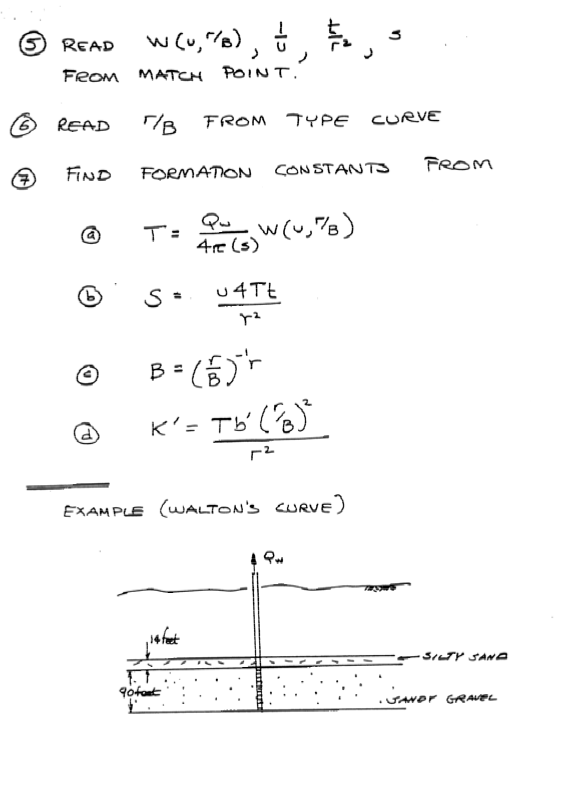 ⑤ READ W(u, r/B), 1/u, t/r², s
FROM MATCH POINT.
⑥ READ r/B FROM TYPE CURVE
⑦ FIND FORMATION CONSTANTS FROM
ⓐ T = Qw / 4π(s) W(u, r/B)
ⓑ S = u4Tt / r²
ⓒ B = (r/B)⁻¹ r
ⓓ K' = Tb'(r/B)² / r²
EXAMPLE (WALTON'S CURVE)
Qw
14 feet
SILTY SAND
90 feet
SANDY GRAVEL